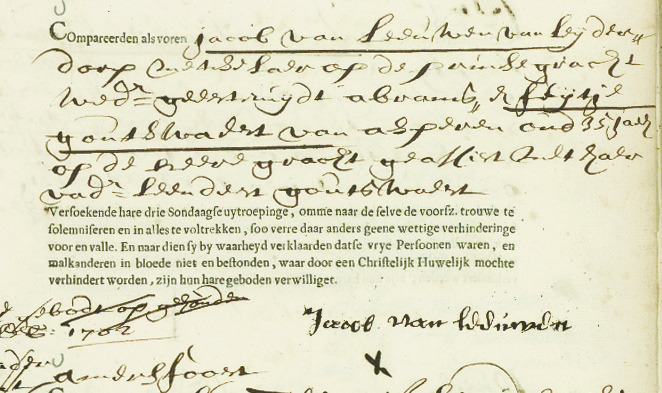 Compareerden als voren Jacob van Leeuwen van Leyder„
dorp metselaer op de prinse gracht
wedr geertruydt abrams, & feijtje
goutswaert van asperen oud 35 Jaer
op de heere gracht geassist met haer
vadr Leendert goutswaert
Versoekende hare drie Sondaagse uytroepinge, omme naar de selve de voorsz. trouwe te
solemniseren en in alles te voltrekken, soo verre daar anders geene wettige verhinderinge
voor en valle. En naar dien sy by waarheyd verklaarden datse vrye Persoonen waren, en
malkanderen in bloede niet en bestonden, waar door een Christelijk Huwelijk mochte
verhindert worden, zijn hun hare geboden verwilliget.
gebodt op
1702
Jacob van Leeuwen
X
amersfoort